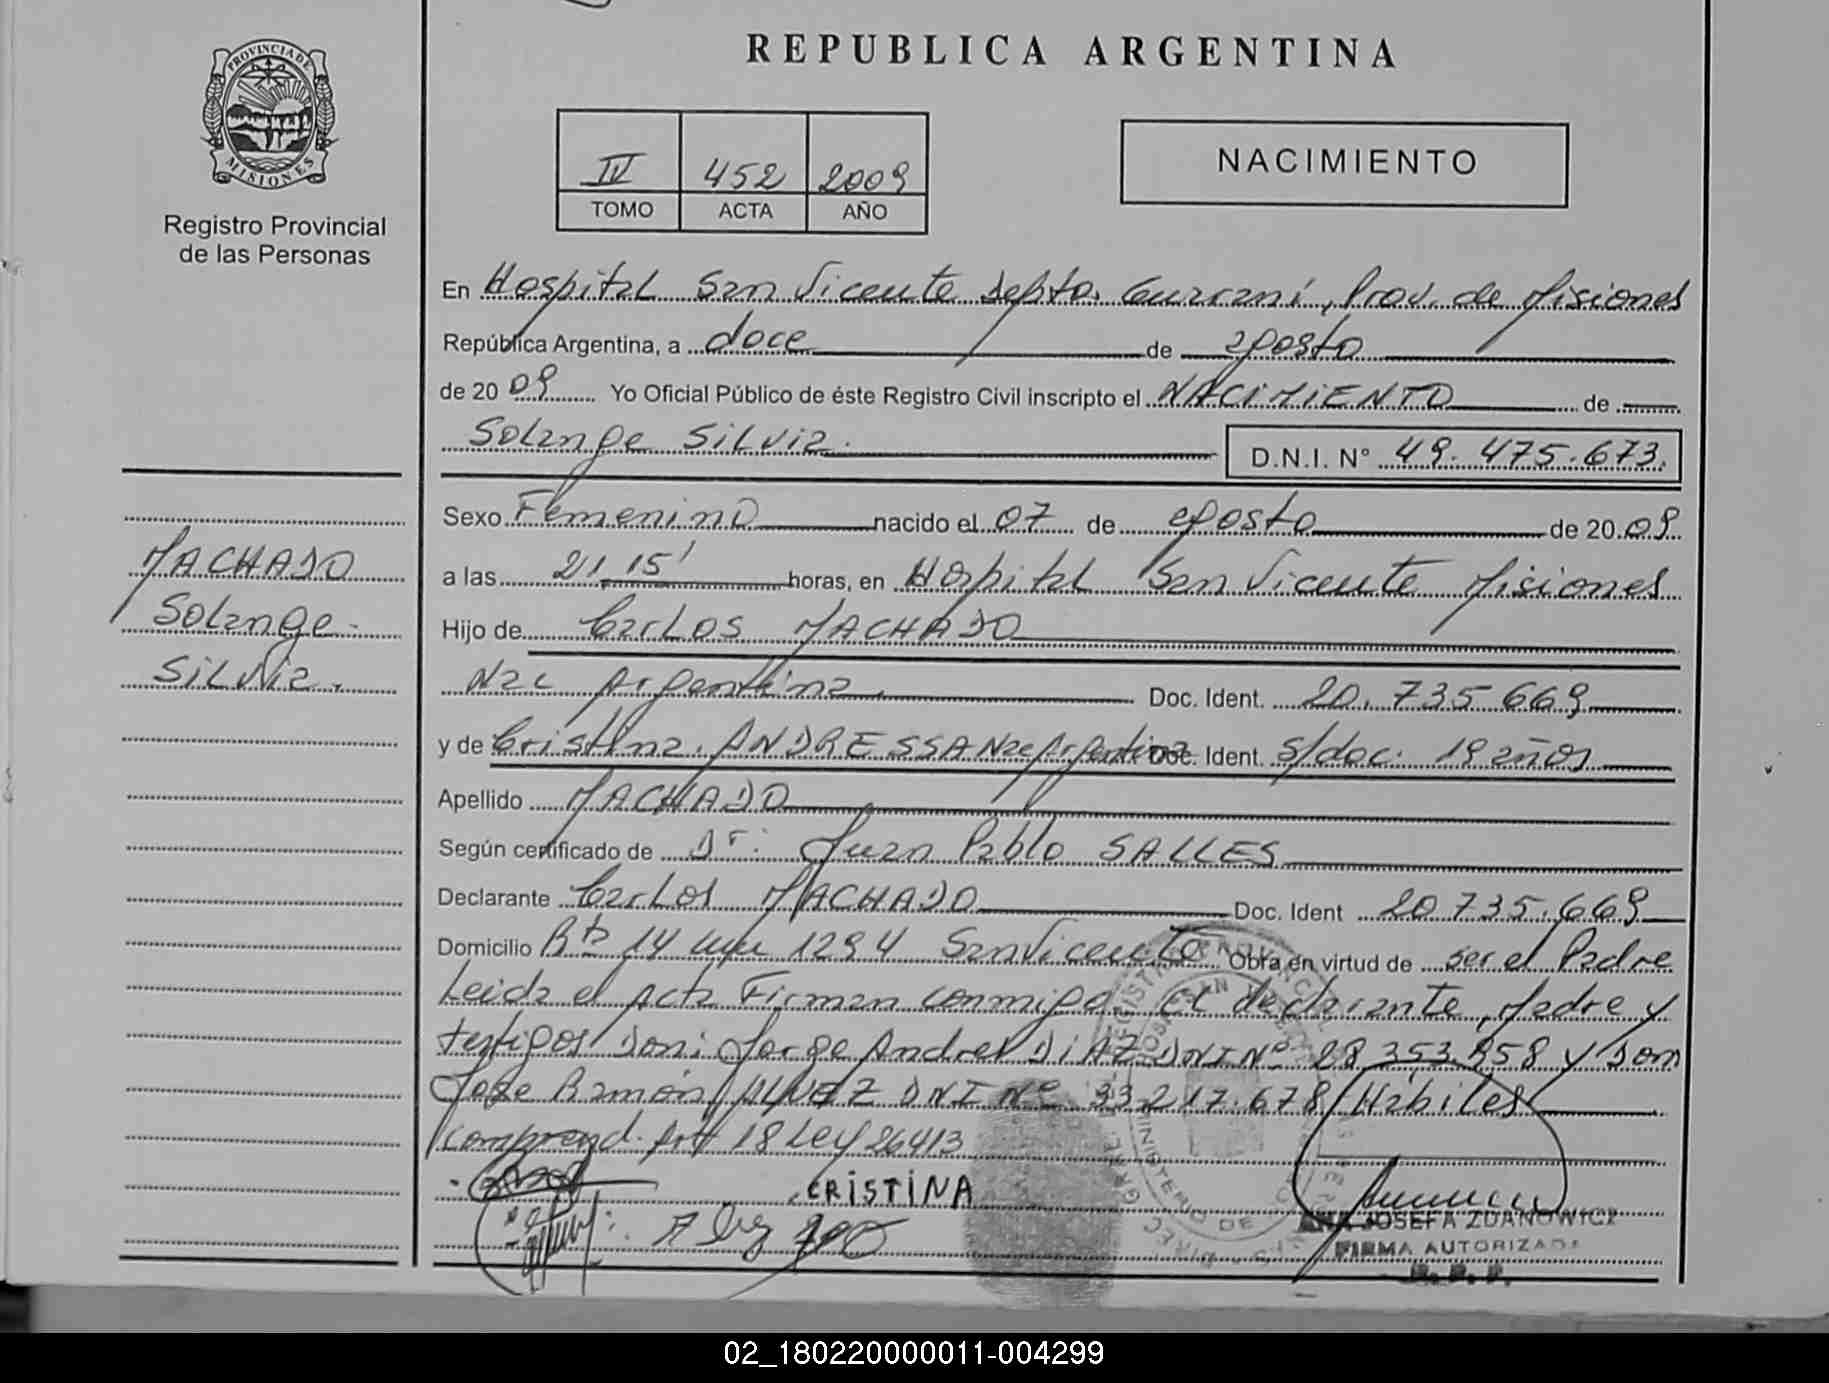 REPUBLICA ARGENTINA
PROVINCIA DE
MISIONES
Registro Provincial
de las Personas
IV 452 2009
TOMO ACTA AÑO
NACIMIENTO
En Hospital San Vicente Depto. Guarani, Prov. de Misiones
República Argentina, a doce de agosto
de 20 09 Yo Oficial Público de éste Registro Civil inscripto el NACIMIENTO de
Solange Silvia. D.N.I. N° 49.475.673.
Sexo Femenino nacido el 07 de agosto de 20 09
a las 21,15' horas, en Hospital San Vicente Misiones
Hijo de Carlos MACHADO
Nac Argentina. Doc. Ident. 20.735 669
y de Cristina. ANDRESSA Nac Argentina Doc. Ident. s/doc. 19 años
Apellido MACHADO
Según certificado de Dr. Juan Pablo SALLES
Declarante Carlos MACHADO Doc. Ident 20 735.669
Domicilio 14 1294 San Vicente Obra en virtud de ser el Padre
Leida el Acta Firman conmigo el declarante, Madre y
testigos Don: Jorge Andres DIAZ DNI N° 28 353.858 y Don
Jose Ramón DNI N° 33 217.678 Hábiles
comprend. Art 18 Ley 26413
CRISTINA
MACHADO
Solange
Silvia.
ANA JOSEFA ZDANOWICZ
FIRMA AUTORIZADA
R. P. P.
02_180220000011-004299